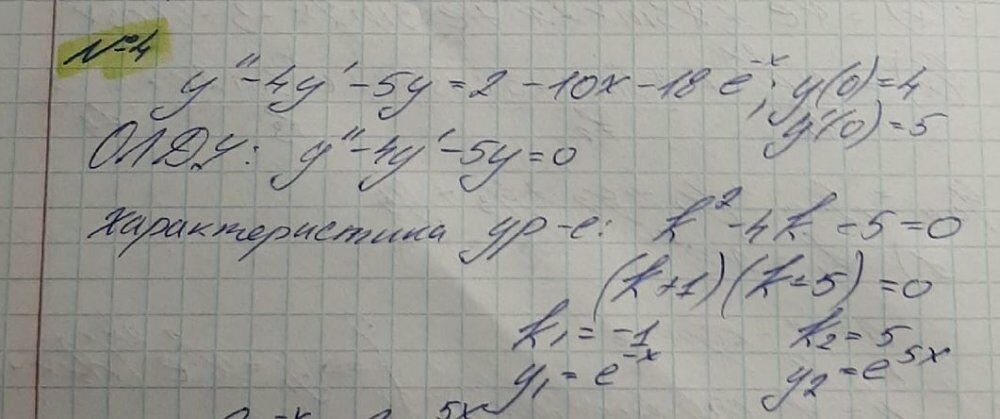 №4
y'' - 4y' - 5y = 2 - 10x - 18 e^{-x}; y(0) = 4
y'(0) = 5
ОЛДУ: y'' - 4y' - 5y = 0
Характеристика ур-е: k² - 4k - 5 = 0
(k+1)(k-5) = 0
k₁ = -1 k₂ = 5
y₁ = e^{-x} y₂ = e^{5x}